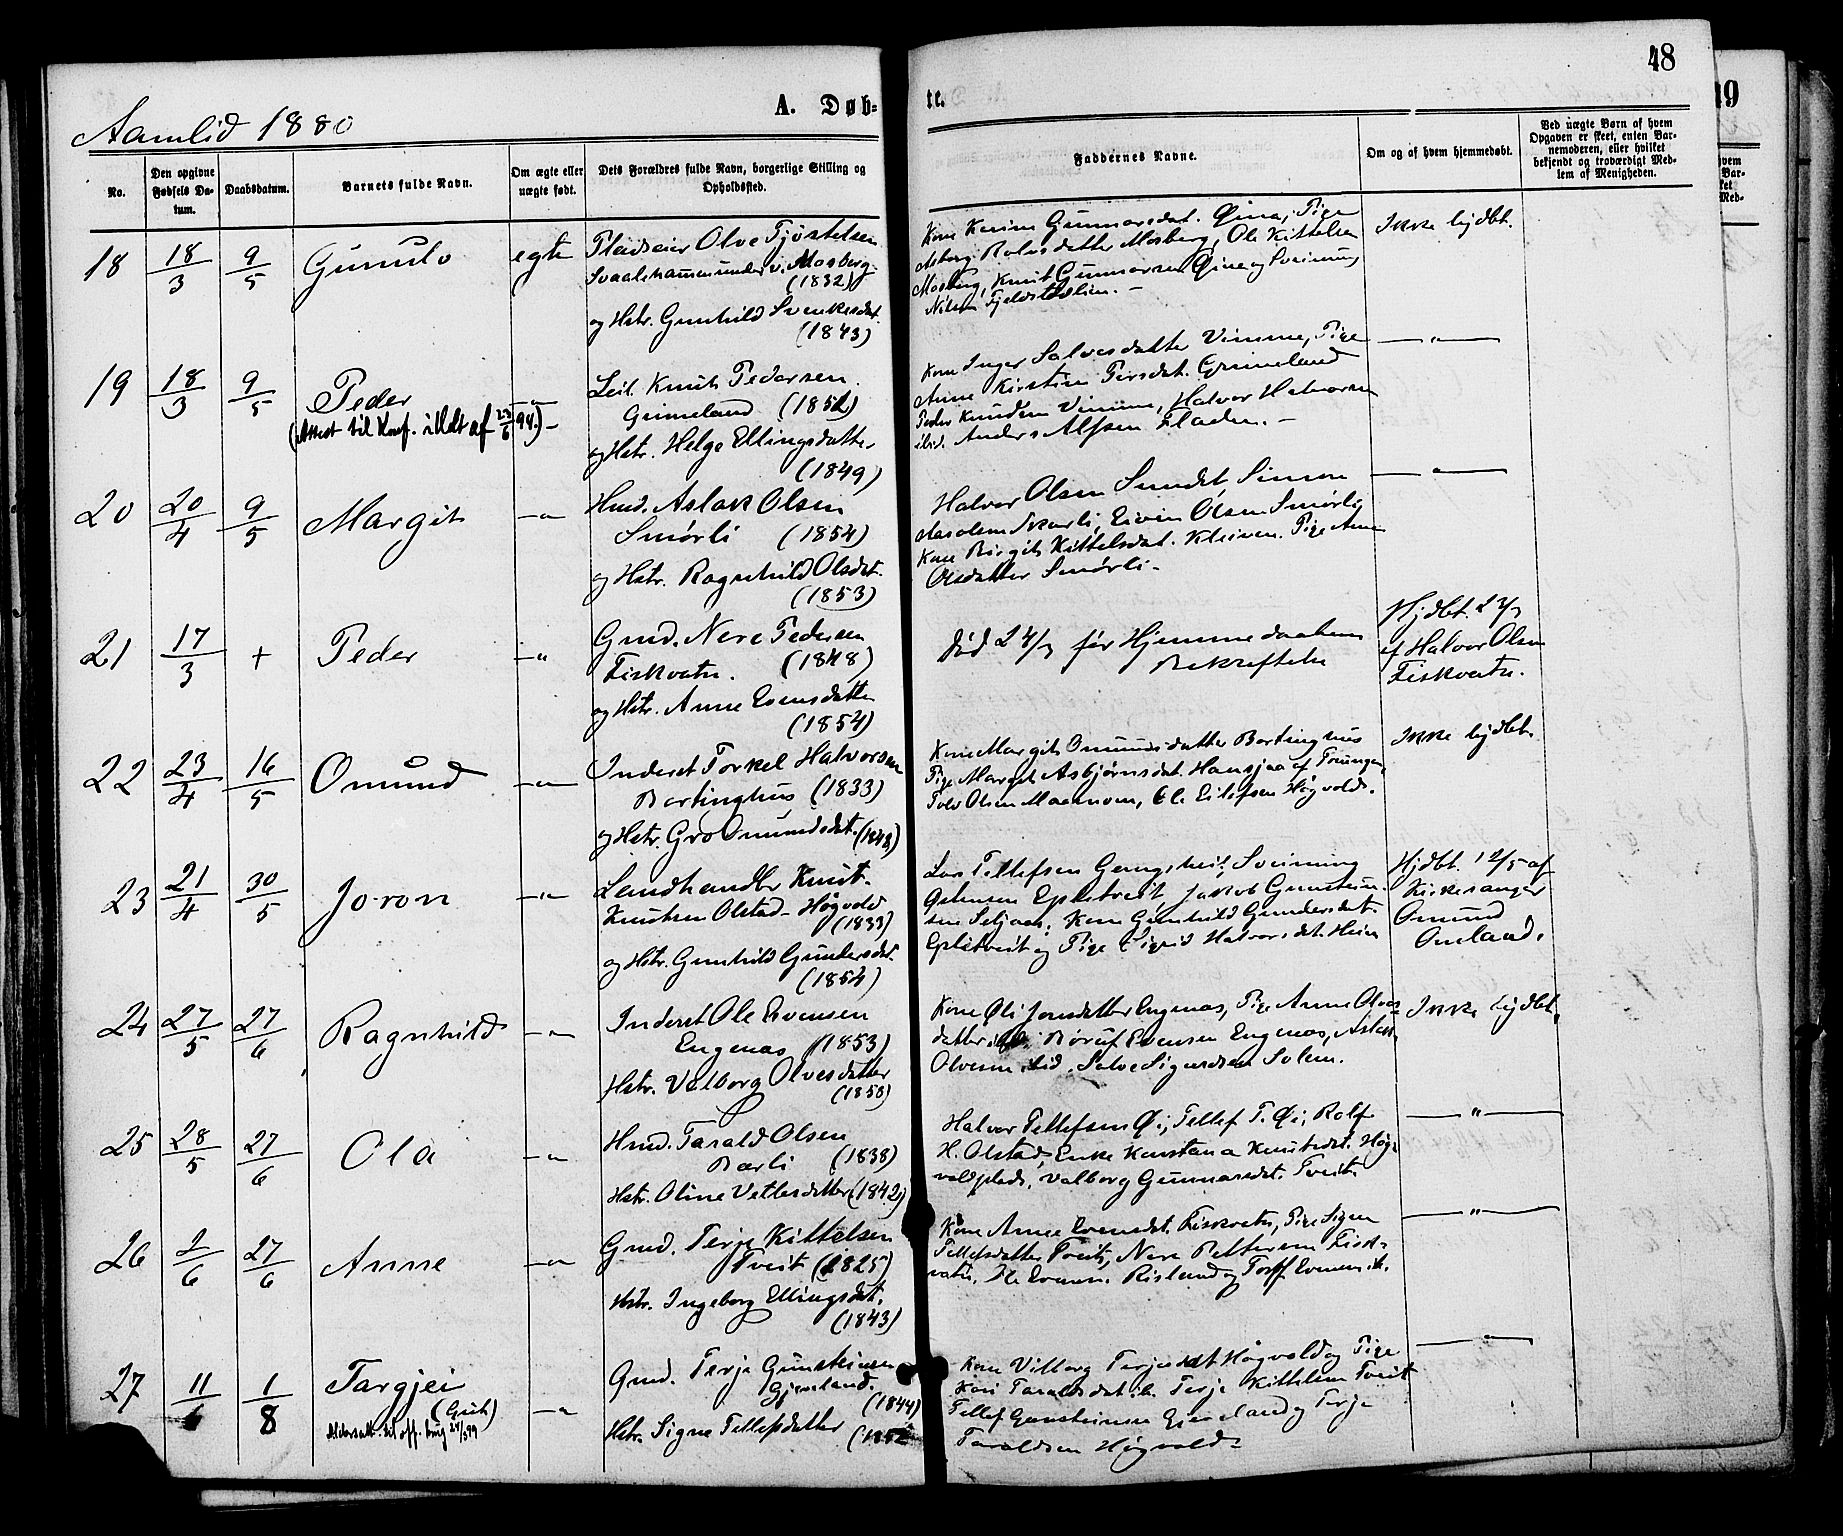 48
19
Aamlid 1880
A. Døb-
te.
No.
Den opgivne Fødsels Da-tum.
Daabsdatum.
Barnets fulde Navn.
Om ægte eller uægte født.
Dets Forældres fulde Navn, borgerlige Stilling og Opholdssted.
Faddernes Navne.
Om og af hvem hjemmedøbt.
Ved uægte Børn af hvem Opgaven er skeet, enten Bar-nemoderen, eller hvilket bekjendt og troværdigt Med-lem af Menigheden.
18
18/3
9/5
Gunulv
egte
Pladseier Olve Tjøstelsen
under Mosberg
(1832)
og Hstr. Gunhild
(1843)
Kone Gunnarsdat. Pige
Rolvsdatter Mosberg, Ole Kittelsen
Mosberg, Knut Gunnarsen
Nilsen
Ikke hjdbt.
19
18/3
9/5
Peder
(Attest til Konf. 94.)
Leil. Knut Pedersen
Grimeland (1852)
og Hstr. Helge Ellingsdatter
(1849)
Kone Inger Salvesdatter Vimme, Pige
Anne Kirstin Persdat. Grimeland
Peder Knudsen Vimme, Halvor Halvorsen
ibid. Anders Alfsen Fladen. -
— " —
20
20/4
9/5
Margit
— " —
Hmd. Aslak Olsen
Smørli (1854)
og Hstr. Ragnhild Olsdat.
(1853)
Halvor Olsen
Eivin Olsen Smørli,
Kone Birgit Kittelsdat. Kleiven. Pige Anne
Olsdatter Smørli -
— " —
21
17/3
+
Peder
— " —
Gmd. Nere Pedersen
Fiskvatn. (1848)
og Hstr. Anne Evensdatter
(1854)
Død før Hjemmedaabens
Bekræftelse
Hjdbt.
af Halvor Olsen
Fiskvatn.
22
23/4
16/5
Omund
— " —
Inderst Torkel Halvorsen
Bortinghus (1833)
og Hstr. Gro Omundsdat.
Kone Margit Omundsdatter Bortinghus
Pige Margit Asbjørnsdat. Hansjaa af
Tolv Olsen Ole Eilefsen Høgvold.
Ikke hjdbt.
23
21/4
30/5
Joron
— " —
Landhandler Knut
Knutsen Olstad - Høgvold
(1833)
og Hstr. Gunhild Gundersdat.
(1854)
Lars Tellefsen
Epletveit Jakob Gunstein-
sen Seljaas; Kone Gunhild Gundersdat.
Epletveit og Pige Sigrid Halvorsdat.
Hjdbt. 12/5 af
Kirkesanger
Omund
Omland.
24
27/5
27/6
Ragnhild
— " —
Inderst Ole Evensen
Engenas (1853)
Hstr. Valborg Olvesdatter
(1850)
Kone Øli Jonsdatter Engenas, Pige Anne Olves-
datter Evensen Engenas, Aslak
Olvesen ibid. Salve Sigurdsen Solem.
Ikke hjdbt.
25
28/5
27/6
Ola
— " —
Hmd. Tarald Olsen
Bærli (1838)
Hstr. Oline Vetlesdatter (1842)
Halvor Tellefsen Øi; Tellef T. Øi; Rolf
H. Olstad; Enke Konstana Knutsdat. Høg-
voldplads, Valborg Gunnarsdat. Tveit.
— " —
26
2/6
27/6
Anne
— " —
Gmd. Terje Kittelsen
Tveit (1825)
Hstr. Ingeborg Ellingsdat.
(1843)
Kone Anne Evensdat. Fiskvatn, Pige Signe
Tellefsdatter Tveit, Nere Pettersen Fisk-
vatn, Ole Evensen Risland og
— " —
27
11/6
1/8
Targjei
(Grut)
Gmd. Terje Gunsteinsen
Gjerland.
(1844)
Hstr. Signe Tellefsdatter
Kone Vilborg Terjesdat Høgvold og Pige
Kari Taraldsdat ib. Terje Kittelsen Tveit
Tellef Gunsteinsen og Terje
Taraldsen Høgvold.
— " —